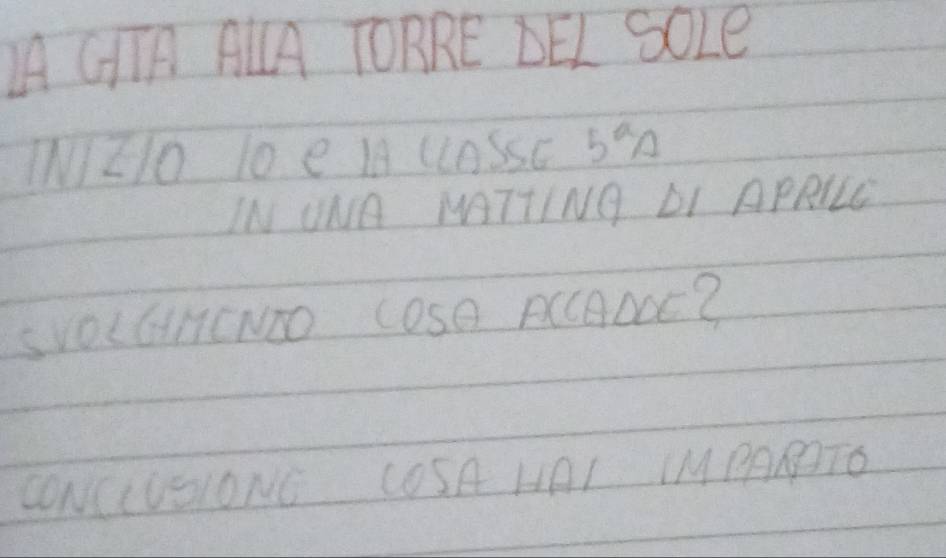 LA GITA ALLA TORRE DEL SOLe
INIZIO IO e LA CLASSE 5ªA
IN UNA MATTINA DI APRILE
SVOLGIMENTO COSA ACCADDE?
CONCLUSIONE COSA HAI IMPARATO